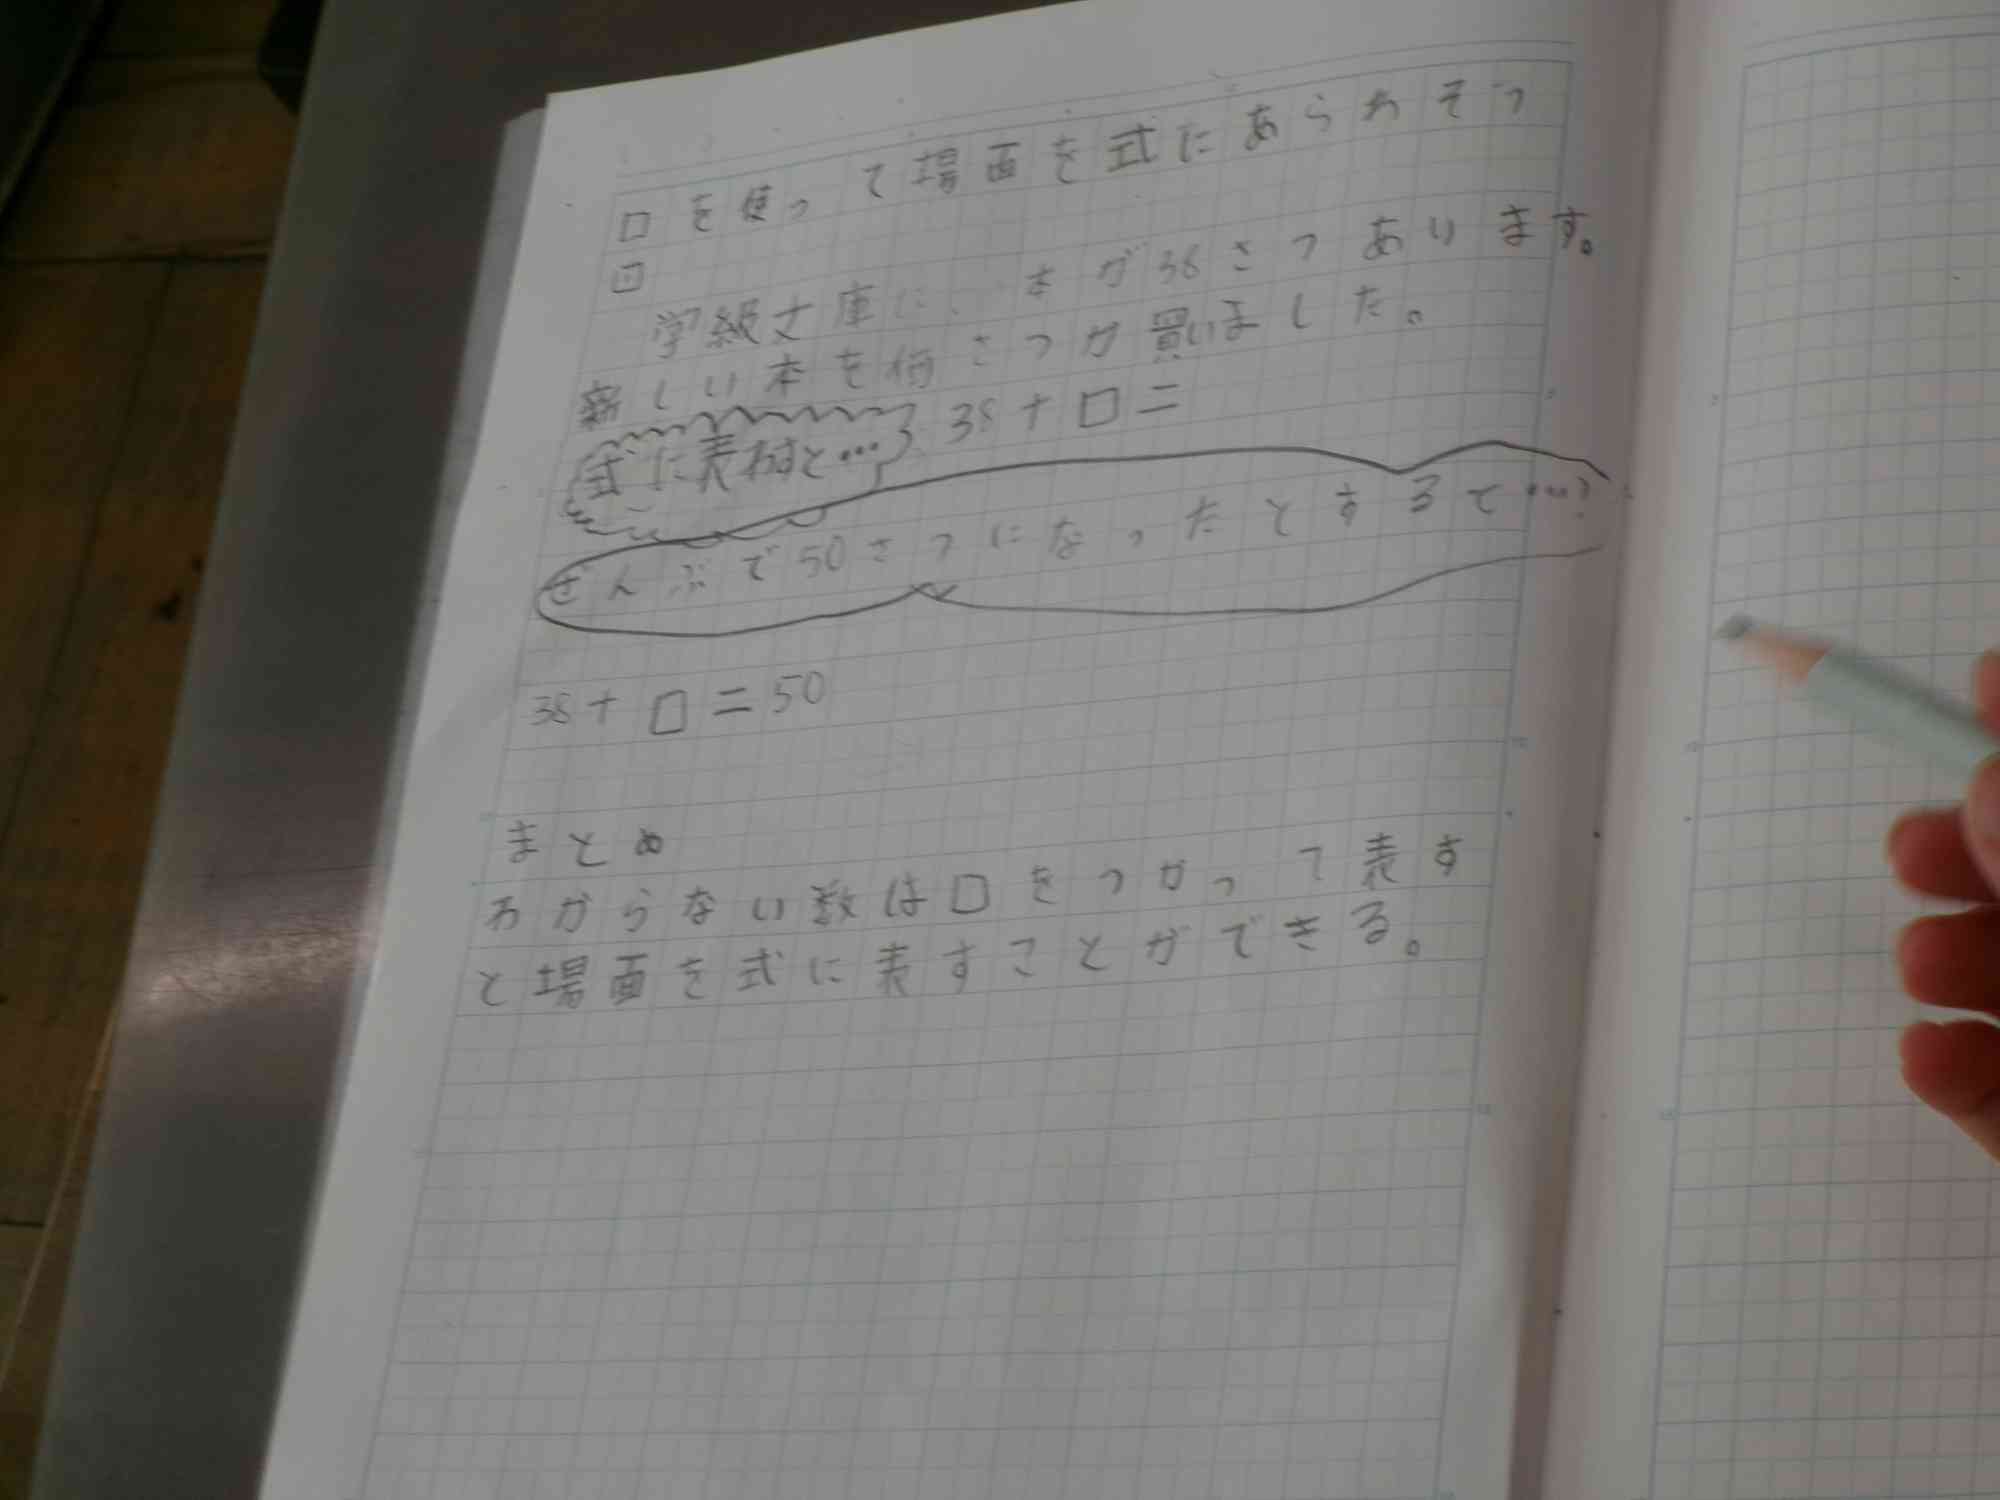 □を使って場面を式にあらわそう
学級文庫に、本が38さつあります。
新しい本を何さつか買いました。
式に表わすと… 38+□=
ぜんぶで50さつになったとするて…?
38+□=50
まとめ
わからない数は□をつかって表す
と場面を式に表すことができる。